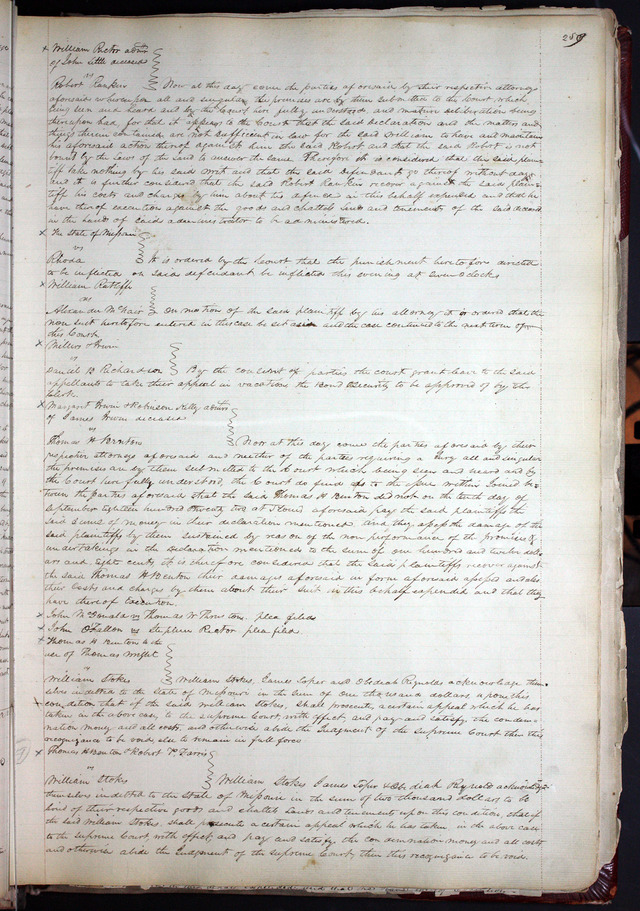 259
x William Rector admr
of John Little deceased
vs
Robert Rankin Now at this day come the parties aforesaid by their respective attorneys
aforesaid whereupon all and singular the premises are by them submitted to the Court, which
being seen and heard and by the Court here fully understood, and mature deliberation being
thereupon had, for that it appears to the Court that the said declaration and the matters and
things therein contained, are not sufficient in law for the said William to have and maintain
his aforesaid action thereof against him the said Robert and that the said Robert is not
bound by the Law of the land to answer the same. Therefore it is considered that the said plain-
tiff take nothing by his said writ and that the said defendant go thereof without day
and it is further considered that the said Robert Rankin recover against the said plain-
tiff his costs and charges by him about his defence in this behalf expended and that he
have thereof execution against the goods and chattels lands and tenements of the said deceased
in the hands of said administrator to be administered.
x The State of Missouri
vs
Rhoda It is ordered by the Court that the punishment heretofore directed
to be inflicted on said defendant be inflicted this evening at seven O clock
x William Ratliff
vs
Alexander McNair On motion of the said plaintiff by his attorney it is ordered that the
non suit heretofore entered in this case be set aside and the case continued to the next term of
this Court.
x Millers & Irwin
vs
Daniel B Richardson By the consent of parties the court grant leave to the said
appellants to take their appeal in vacation the Bond & security to be approved of by the
Clerk.
x Margaret Irwin & Robinson Kelly admrs
of James Irwin deceased
vs
Thomas H Benton Now at this day come the parties aforesaid by their
respective attorneys aforesaid and neither of the parties requiring a Jury all and singular
the premises are by them submitted to the Court which being seen and heard and by
the Court here fully understood, the Court do find as to the issue within Joined be-
tween the parties aforesaid that the said Thomas H Benton did not on the tenth day of
September eighteen hundred & twenty two at St Louis aforesaid pay the said plaintiffs the
said sums of money in their declaration mentioned. And they assess the damage of the
said plaintiffs by them sustained by reason of the non performance of the promises &
undertakings in the declaration mentioned to the sum of one hundred and twelve doll-
ars and Eight cents, it is therefore considered that the said plaintiffs recover against
the said Thomas H Benton their damages aforesaid in form aforesaid assessed and also
their costs and charges by them about their suit in this behalf expended and that they
have thereof execution.
x John McDonald vs Thomas W Thruston. plea filed
x John O Fallon vs Stephen Rector plea filed.
x Thomas H Benton to the
use of Thomas Wright
vs
William Stokes William Stokes, James Loper and Obediah Reynolds acknowledge them-
selves indebted to the State of Missouri in the sum of one thousand dollars, upon this
condition that if the said William Stokes, shall prosecute, a certain appeal which he has
taken in the above case, to the supreme Court, with effect, and pay and satisfy the condem-
nation money and all costs and otherwise abide the Judgment of the supreme Court then this
recognizance to be void else to remain in full force
x Thomas H Benton & Robert P. Farris
vs
William Stokes William Stokes James Loper & Obediah Reynolds acknowledge
themselves indebted to the State of Missouri in the sum of two thousand dollars to be
levied of their respective goods and chattels lands and tenements upon this condition, that if
the said William Stokes, shall prosecute a certain appeal which he has taken in the above case
to the supreme Court, with effect and pay and satisfy the condemnation money and all costs
and otherwise abide the Judgment of the Supreme Court, then this recognizance to be void.